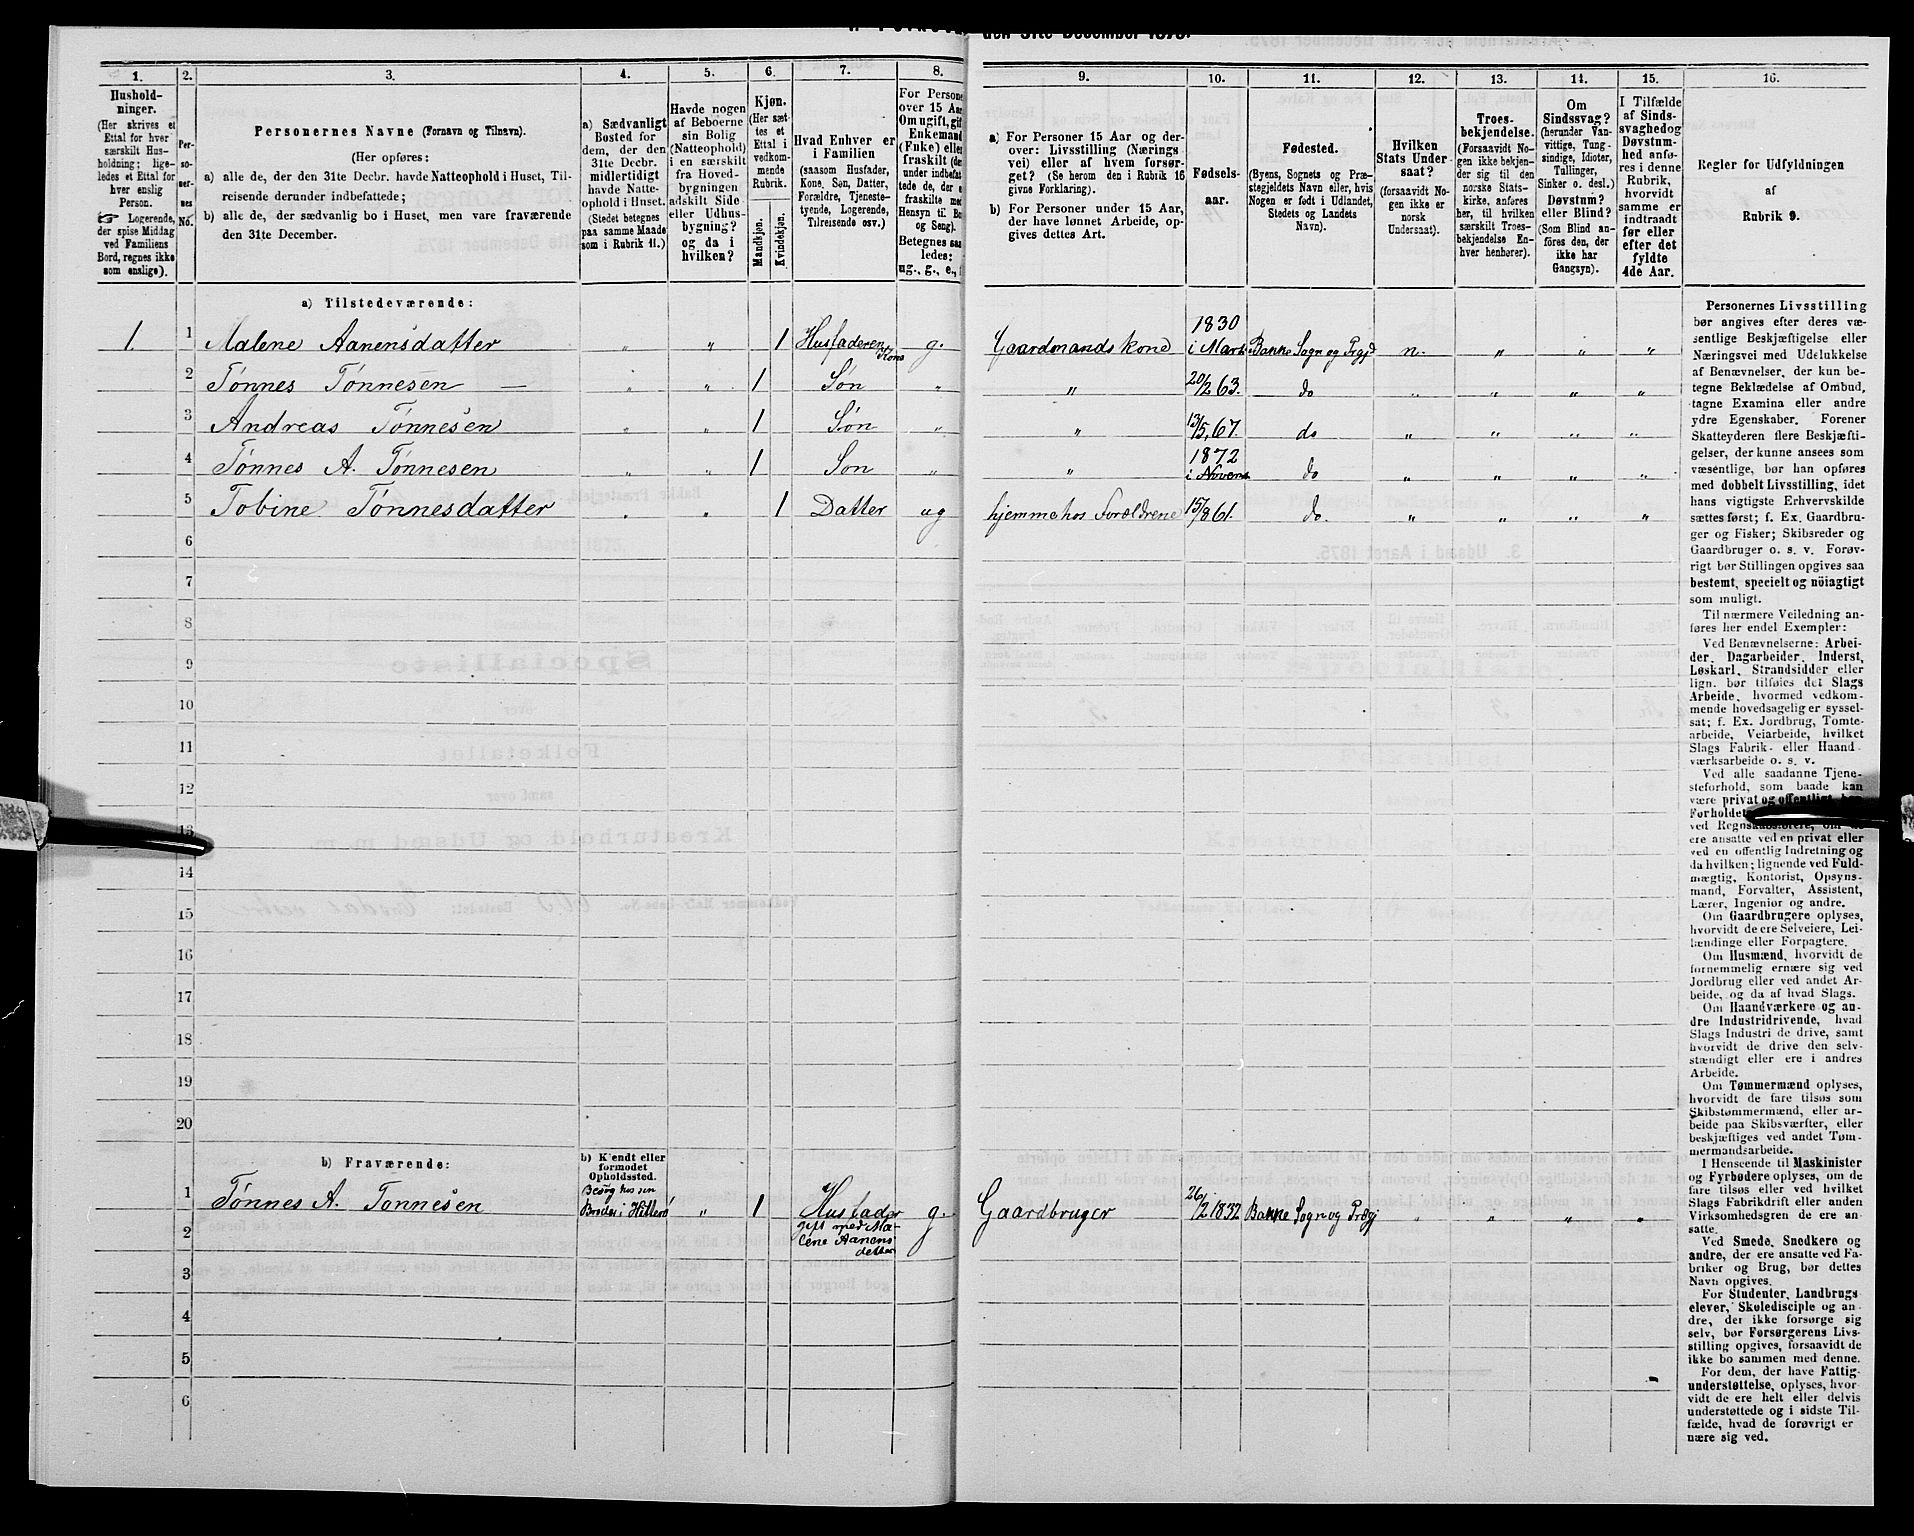 den 31te December 1875.
1. 2. 3. 4. 5. 6. 7. 8. 9. 10. 11. 12. 13. 14. 15. 16.
Hushold-
ninger.
(Her skrives et
Ettal for hver
særskilt Hus-
holdning; lige-
ledes et Ettal for
hver enslig
Person.
☞ Logerende,
der spise Middag
ved Familiens
Bord, regnes ikke
som enslige).
Per-
so-
ner-
nes
No.
Personernes Navne (Fornavn og Tilnavn).
(Her opføres:
a) alle de, der den 31te Decbr. havde Natteophold i Huset, Til-
reisende derunder indbefattede;
b) alle de, der sædvanlig bo i Huset, men vare fraværende
den 31te December.
a) Sædvanligt
Bosted for
dem, der den
31te Decbr.
midlertidigt
havde Natte-
ophold i Huset.
(Stedet betegnes
paa samme Maade
som i Rubrik 11.)
Havde nogen
af Beboerne
sin Bolig
(Natteophold)
i en særskilt
fra Hoved-
bygningen
adskilt Side
eller Udhus-
bygning?
og da i
hvilken?
Kjøn.
(Her sæt-
tes et
Ettal i
vedkom-
mende
Rubrik.
Mandkjøn.
Kvindekjøn.
Hvad Enhver er
i Familien
(saasom Husfader,
Kone, Søn, Datter,
Forældre, Tjeneste-
tyende, Logerende,
Tilreisende osv.)
For Persone
over 15 Aar
Om ugift, gif
Enkemand
(Fuke) elle
fraskilt (de
under indbefat-
tede de, der e
fraskilte med
Hensyn til Bo
og Seng).
Betegnes saa
ledes:
ug., g., e.,
a) For Personer 15 Aar og der-
over: Livsstilling (Nærings
vei) eller af hvem forsør-
get? (Se herom den i Rubrik 16
givne Forklaring).
b) For Personer under 15 Aar,
der have lønnet Arbeide, op-
gives dettes Art.
Fødsels-
aar.
Fødested.
(Byens, Sognets og Præ-
stegjeldets Navn eller, hvis
Nogen er født i Udlandet,
Stedets og Landets
Navn).
Hvilken
Stats Under
saat?
(forsaavidt No-
gen ikke er
norsk
Undersaat).
Troes-
bekjendelse.
(Forsaavidt No
gen ikke bekjen-
der sig til den
norske Stats-
kirke, anføres
her, til hvilken
særskilt Troes-
bekjendelse En-
hver henhører).
Om
Sindssvag?
(herunder Van-
vittige, Tung-
sindige, Idioter,
Tullinger,
Sinker o. desl.)
Døvstum?
eller Blind?
(Som Blind an-
føres den, der
ikke har
Gangsyn).
I Tilfælde
af Sinds-
svaghed og
Døvstum-
hed anfø-
res i denne
Rubrik,
hvorvidt
samme er
indtraadt
før eller
efter det
fyldte
4de Aar.
Regler for Udfyldningen
af
Rubrik 9.
a) Tilstedeværende:
1. 1 Malene Aanensdatter " " 1 Husfaderens Kone g. Gaardmandskone 1830 i Marts Bakke Sogn og Prgjd n. " " "
2 Tønnes Tønnesen — " " 1 Søn " " 20/2 63. do " " " "
3 Andreas Tønnesen " " 1 Søn " " 13/5, 67. do " " " "
4 Tønnes A. Tønnesen " " 1 Søn " " 1872 i Novem do " " " "
5 Tobine Tønnesdatter " " 1 Datter ug hjemme hos Forældrene 15/8 61. do. " " " "
6
7
8
9
10
11
12
13
14
15
16
17
18
19
20
b) Fraværende:
b) Kjendt eller
formodet
Opholdssted.
1 Tønnes A. Tonnesen Besøg hos sen Broder i Hitterø " 1 Husfader g. Gaardbruger 26/2 1832 Bakke Sogn og Prægj " " " "
2 gift med Ma-
lene Aanens
datter
3
4
5
6
Personernes Livsstilling
bør angives efter deres væ-
sentlige Beskjæftigelse eller
Næringsvei med Udelukkelse
af Benævnelser, der kun be-
tegne Beklædelse af Ombud,
tagne Examina eller andre
ydre Egenskaber. Forener
Skatteyderen flere Beskjæfti-
gelser, der kunne ansees som
væsentlige, bør han opføres
med dobbelt Livsstilling, idet
hans vigtigste Erhvervskilde
sættes først; f. Ex. Gaardbru-
ger og Fisker; Skibsreder og
Gaardbruger o. s. v. Forøv-
rigt bør Stillingen opgives saa
bestemt, specielt og nöiagtigt
som muligt.
Til nærmere Veiledning an-
føres her endel Exempler:
Ved Benævnelserne: Arbei-
der, Dagarbeider, Inderst,
Løskarl, Strandsidder eller
lign. bør tilføies det Slags
Arbeide, hvormed vedkom-
mende hovedsagelig er syssel-
sat; f. Ex. Jordbrug, Tomte-
arbeide, Veiarbeide, hvilket
Slags Fabrik- eller Haand
værksarbeide o. s. v.
Ved alle saadanne Tjene-
steforhold, som baade kan
være privat og offentligt, bør
Forholdet
ved Regnskabsførere, om de
ere ansatte ved en privat eller
ved en offentlig Indretning og
da hvilken; lignende ved Fuld-
mægtig, Kontorist, Opsyns-
mand, Forvalter, Assistent,
Lærer, Ingeniør og andre.
Om Gaardbrugere oplyses,
hvorvidt de ere Selveiere, Lei-
lændinge eller Forpagtere.
Om Husmænd, hvorvidt de
fornemmelig ernære sig ved
Jordbrug eller ved andet Ar-
beide, og da af hvad Slags.
Om Haandværkere og an-
dre Industridrivende, hvad
Slags Industri de drive, samt
hvorvidt de drive den selv-
stændigt eller ere i andres
Arbeide.
Om Tømmermænd oplyses,
hvorvidt de fare tilsøs som
Skibstømmermænd, eller ar-
beide paa Skibsværfter, eller
beskjæftiges ved andet Tøm-
mermandsarbeide.
I Henseende til Maskinister
og Fyrbødere oplyses, om de
fare tilsøs eller ved hvilket
Slags Fabrikdrift eller anden
Virksomhedsgren de ere an-
satte.
Ved Smede, Snedkere og
andre, der ere ansatte ved Fa-
briker og Brug, bør dettes
Navn opgives.
For Studenter, Landbrugs
elever, Skoledisciple og an-
dre, der ikke forsørge sig
selv, bør Forsørgerens Livs-
stilling opgives, forsaavidt de
ikke bo sammen med denne.
For dem, der have Fattig-
understøttelse, oplyses, hvor-
vidt de ere helt eller delvis
understøttede og i sidste Til-
fælde, hvad de forøvrigt er
nære sig ved.